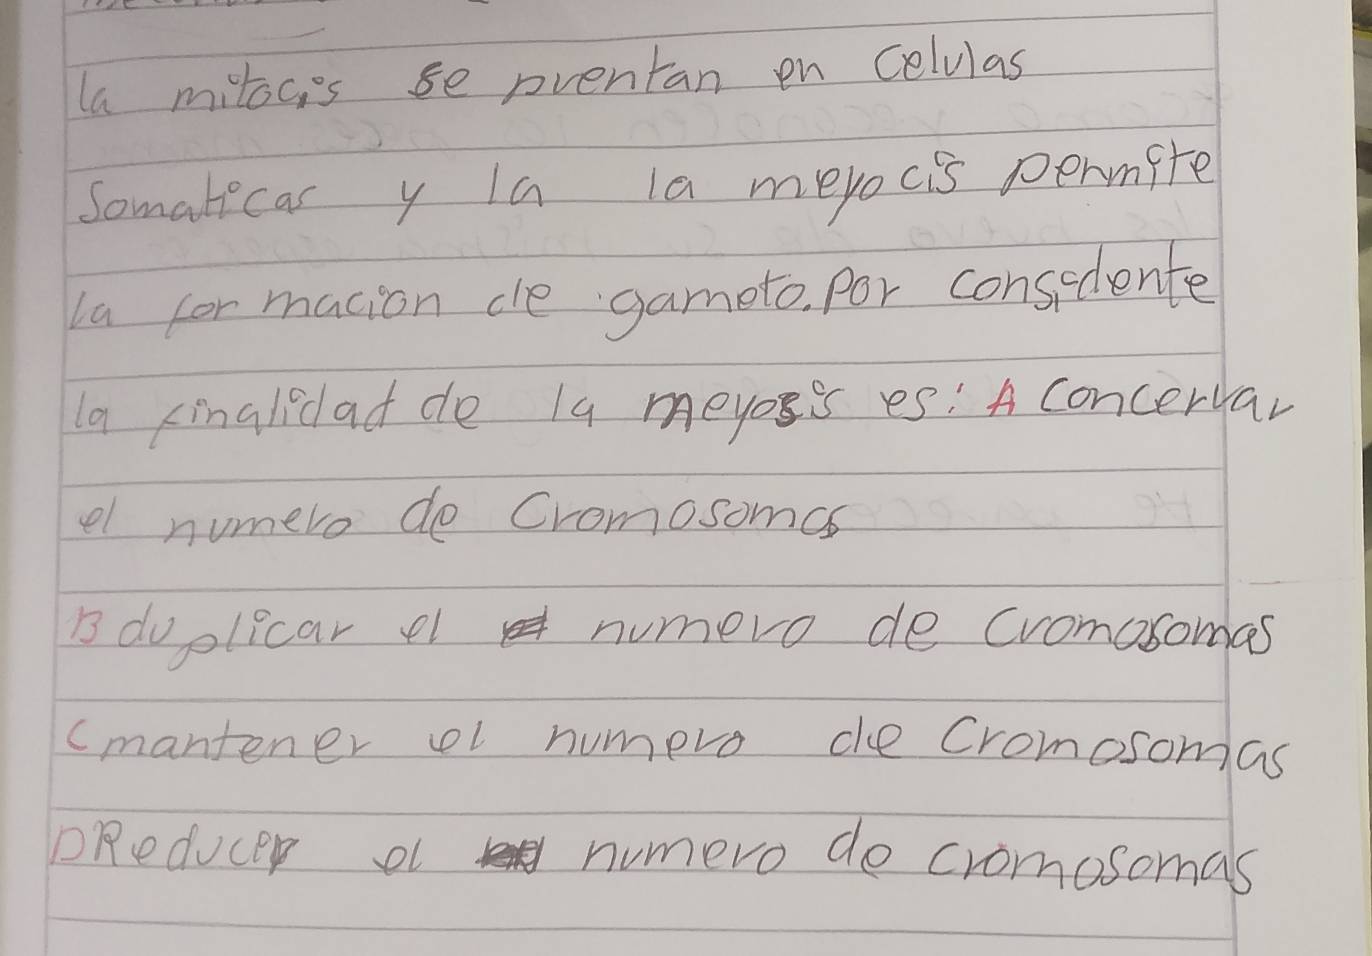 la mitocis se pventan en celulas
somaticas y la la meyocis permite
la formacion de gameto. Por considente
la finalidad de la meyosis es: A concervar
el numero de cromosomas
B duplicar el numero de cromosomas
C mantener el numero de cromosomas
D Reducir el numero de cromosomas